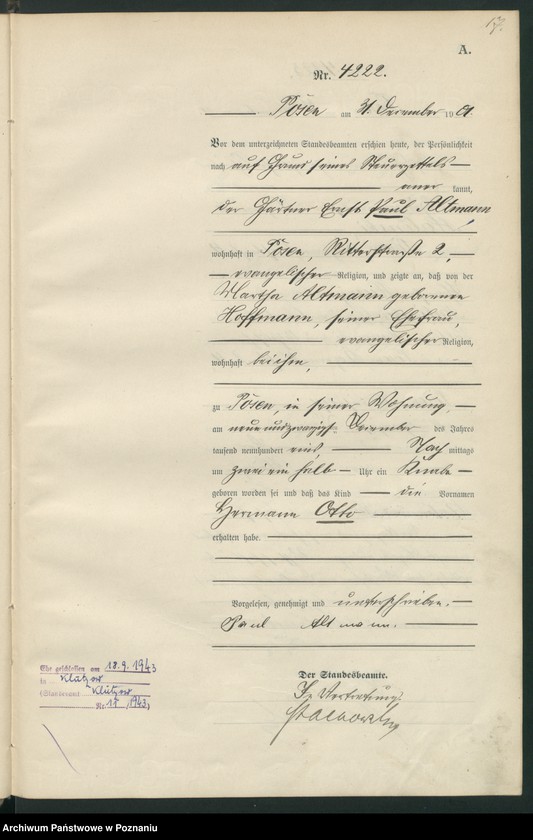 A.
Nr. 4222.
Posen am 31. Dezember 1901.
Vor dem unterzeichneten Standesbeamten erschien heute, der Persönlichkeit
nach auf Grund seines Steuerzettels
anerkannt,
der Gärtner Ernst Paul Altmann,
wohnhaft in Posen, Ritterstraße 2,
evangelischer Religion, und zeigte an, daß von der
Martha Altmann geborenen
Hoffmann, seiner Ehefrau,
evangelischer Religion,
wohnhaft bei ihm,
zu Posen, in seiner Wohnung,
am neunundzwanzigsten Dezember des Jahres
tausend neunhundert eins, Nachmittags
um zwei ein halb Uhr ein Knabe
geboren worden sei und daß das Kind die Vornamen
Hermann Otto
erhalten habe.
Vorgelesen, genehmigt und unterschrieben.
Paul Altmann.
Der Standesbeamte.
In Vertretung.
Ehe geschlossen am 18.9.1943
in Klützow
(Standesamt Klützow
Nr. /1943)
Archiwum Państwowe w Poznaniu